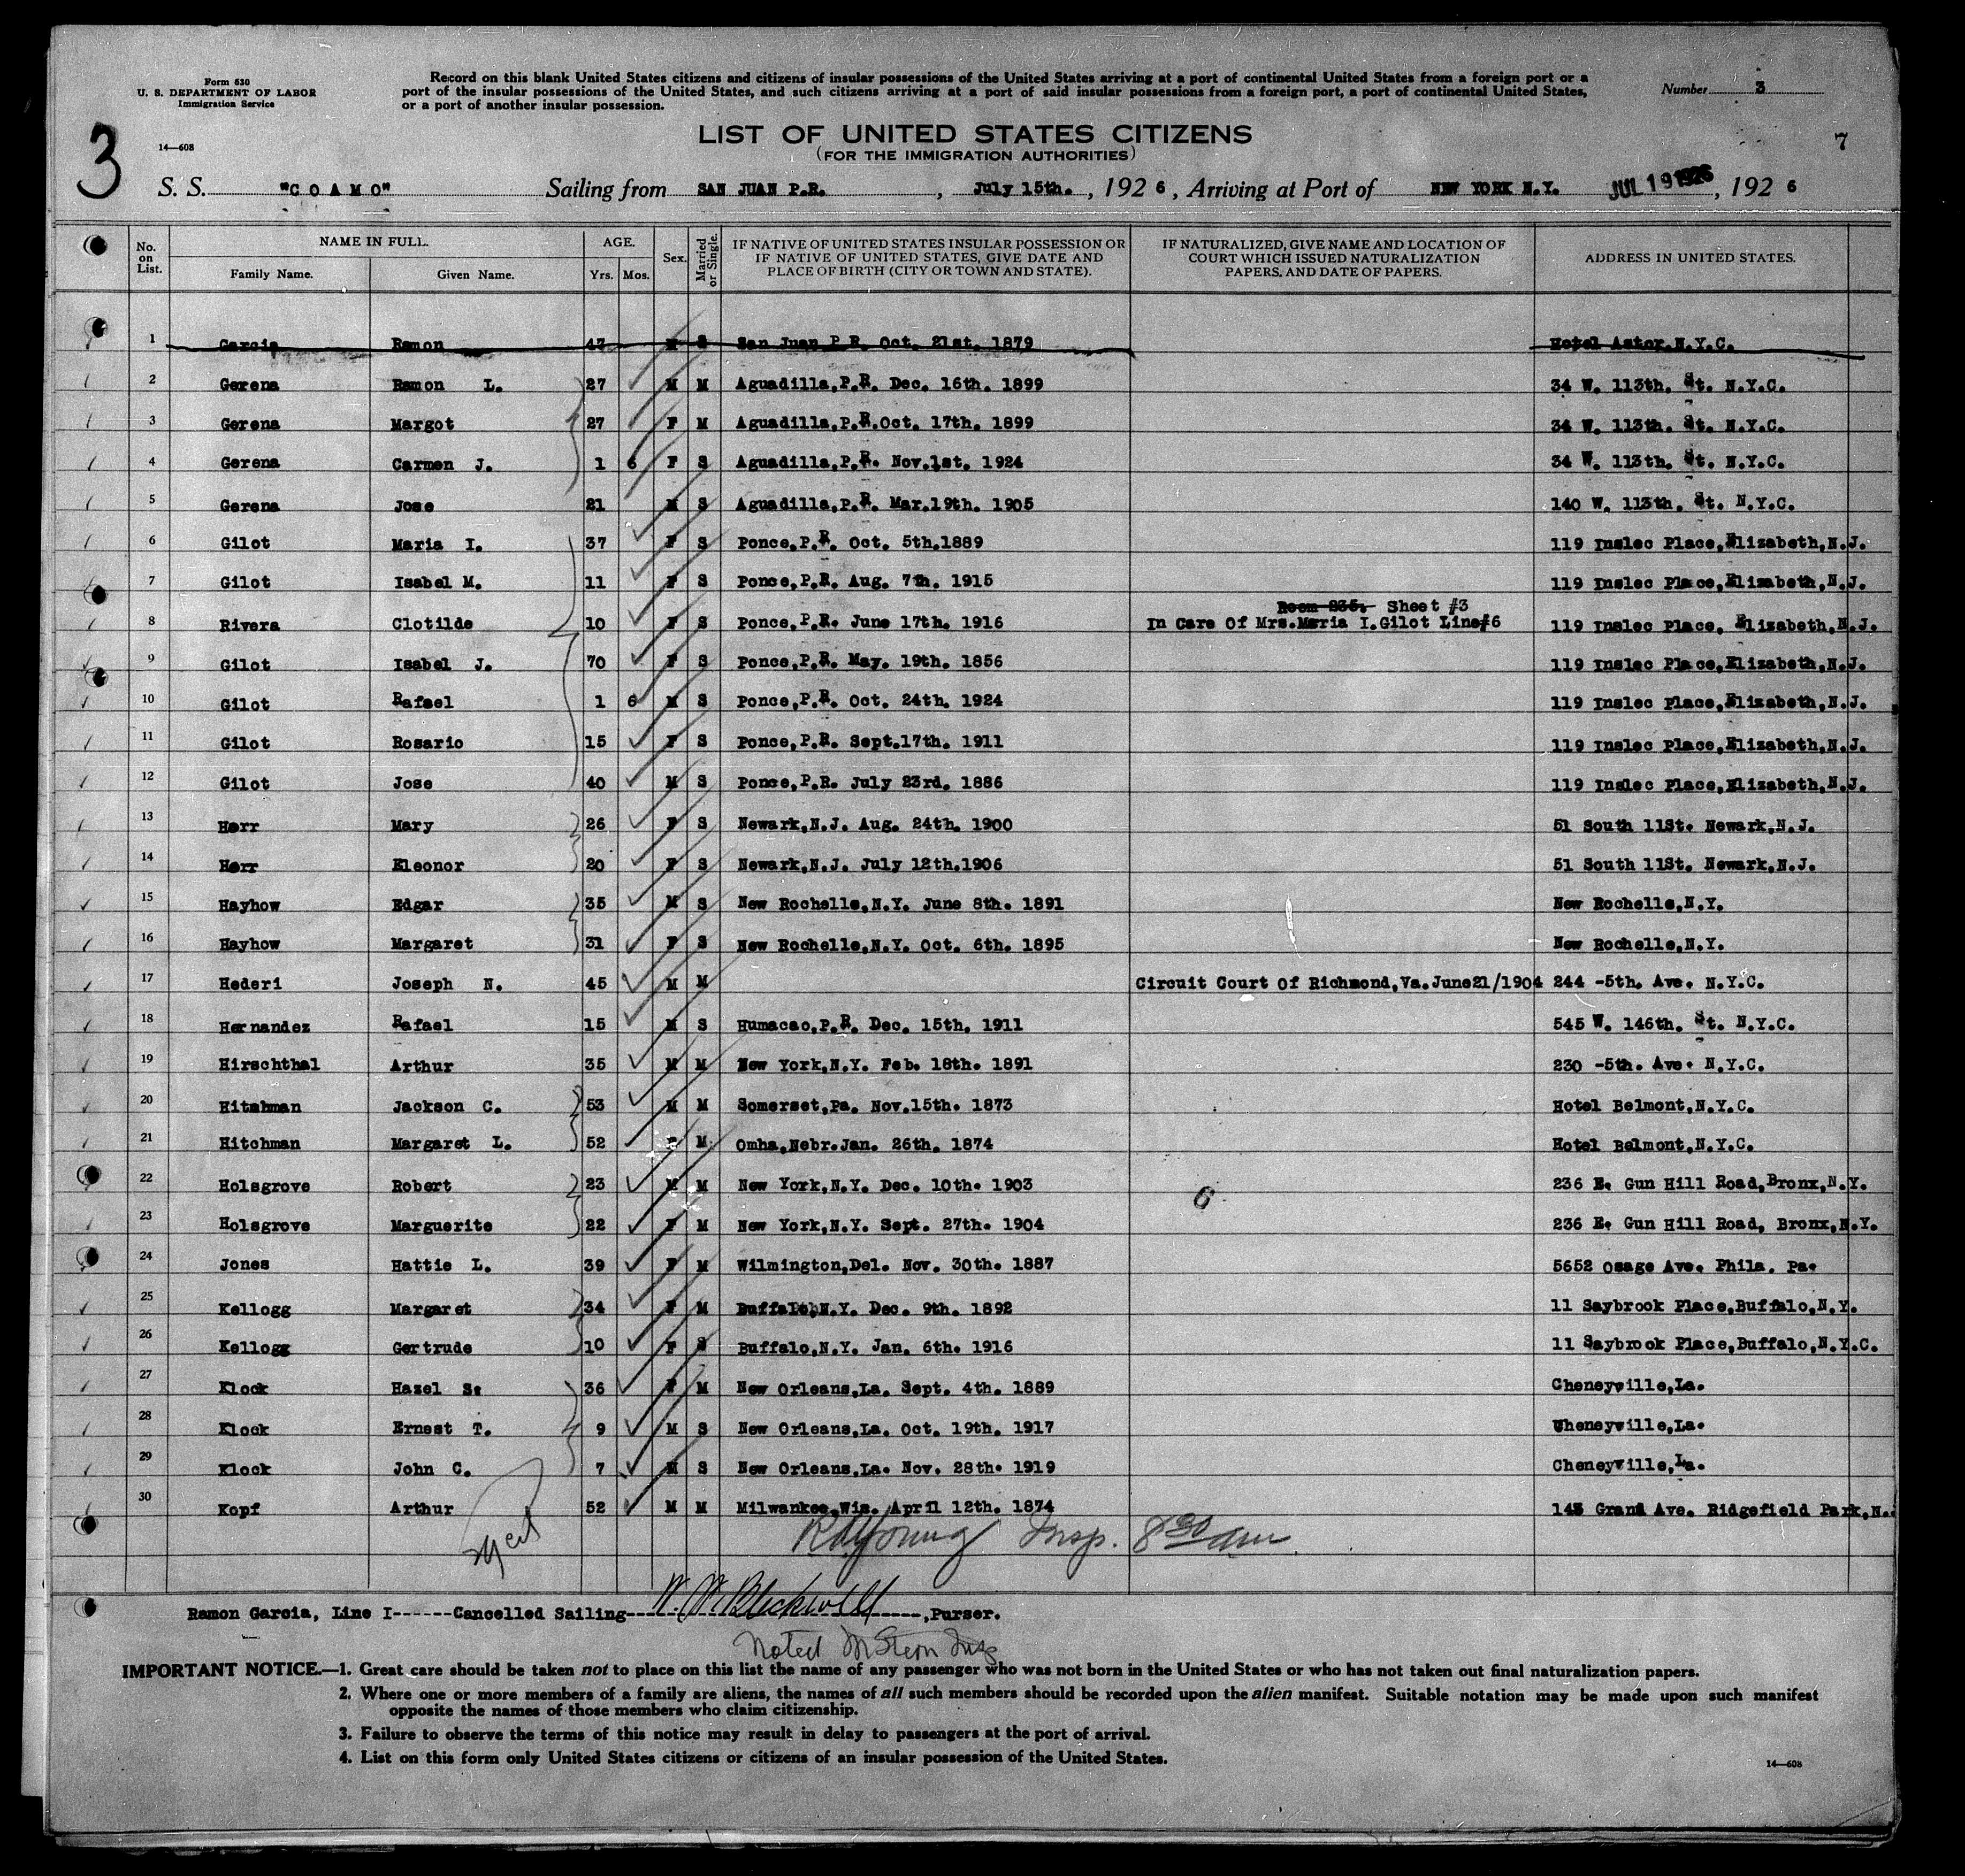 Form 630
U. S. DEPARTMENT OF LABOR
Immigration Service
Record on this blank United States citizens and citizens of insular possessions of the United States arriving at a port of continental United States from a foreign port or a
port of the insular possessions of the United States, and such citizens arriving at a port of said insular possessions from a foreign port, a port of continental United States,
or a port of another insular possession.
Number 3
3
14—608
LIST OF UNITED STATES CITIZENS
(FOR THE IMMIGRATION AUTHORITIES)
7
S. S. "COAMO" Sailing from SAN JUAN P.R., July 15th., 1926, Arriving at Port of NEW YORK N.Y. JUL 19 1926, 1926
No. on List. NAME IN FULL. Family Name. Given Name. AGE. Yrs. Mos. Sex. Married or Single. IF NATIVE OF UNITED STATES INSULAR POSSESSION OR IF NATIVE OF UNITED STATES, GIVE DATE AND PLACE OF BIRTH (CITY OR TOWN AND STATE). IF NATURALIZED, GIVE NAME AND LOCATION OF COURT WHICH ISSUED NATURALIZATION PAPERS, AND DATE OF PAPERS. ADDRESS IN UNITED STATES.
1 Garcia Ramon 47 M S San Juan P.R. Oct. 21st. 1879 Hotel Astor.N.Y.C.
2 Gerena Ramon L. 27 M M Aguadilla,P.R. Dec. 16th. 1899 34 W. 113th. St. N.Y.C.
3 Gerena Margot 27 F M Aguadilla,P.R.Oct. 17th. 1899 34 W. 113th. St. N.Y.C.
4 Gerena Carmen J. 1 6 F S Aguadilla,P.R. Nov.1st. 1924 34 W. 113th. St. N.Y.C.
5 Gerena Jose 21 M S Aguadilla,P.R. Mar.19th. 1905 140 W. 113th. St. N.Y.C.
6 Gilot Maria I. 37 F S Ponce,P.R. Oct. 5th.1889 119 Inslec Place,Elizabeth,N.J.
7 Gilot Isabel M. 11 F S Ponce,P.R. Aug. 7th. 1915 119 Inslec Place,Elizabeth,N.J.
Room 235. Sheet #3
8 Rivera Clotilde 10 F S Ponce,P.R. June 17th. 1916 In Care Of Mrs.Maria I.Gilot Line#6 119 Inslec Place, Elizabeth,N.J.
9 Gilot Isabel J. 70 F S Ponce,P.R. May. 19th. 1856 119 Inslec Place,Elizabeth,N.J.
10 Gilot Rafael 1 6 M S Ponce,P.R. Oct. 24th. 1924 119 Inslec Place,Elizabeth,N.J.
11 Gilot Rosario 15 F S Ponce,P.R. Sept.17th. 1911 119 Inslec Place,Elizabeth,N.J.
12 Gilot Jose 40 M S Ponce,P.R. July 23rd. 1886 119 Inslec Place,Elizabeth,N.J.
13 Herr Mary 26 F S Newark,N.J. Aug. 24th. 1900 51 South 11St. Newark,N.J.
14 Herr Eleonor 20 F S Newark,N.J. July 12th.1906 51 South 11St. Newark,N.J.
15 Hayhow Edgar 35 M S New Rochelle,N.Y. June 8th. 1891 New Rochelle,N.Y.
16 Hayhow Margaret 31 F S New Rochelle,N.Y. Oct. 6th. 1895 New Rochelle,N.Y.
17 Hederi Joseph N. 45 M M Circuit Court Of Richmond,Va.June21/1904 244 -5th. Ave. N.Y.C.
18 Hernandez Rafael 15 M S Humacao,P.R. Dec. 15th. 1911 545 W. 146th. St. N.Y.C.
19 Hirschthal Arthur 35 M M New York,N.Y. Feb. 18th. 1891 230 -5th. Ave. N.Y.C.
20 Hitchman Jackson C. 53 M M Somerset,Pa. Nov.15th. 1873 Hotel Belmont,N.Y.C.
21 Hitchman Margaret L. 52 F M Omha,Nebr.Jan. 26th. 1874 Hotel Belmont,N.Y.C.
22 Holsgrove Robert 23 M M New York,N.Y. Dec. 10th. 1903 236 E. Gun Hill Road,Bronx,N.Y.
23 Holsgrove Marguerite 22 F M New York,N.Y. Sept. 27th. 1904 236 E. Gun Hill Road, Bronx,N.Y.
24 Jones Hattie L. 39 F M Wilmington,Del. Nov. 30th. 1887 5652 Osage Ave. Phila. Pa.
25 Kellogg Margaret 34 F M Buffalo,N.Y. Dec. 9th. 1892 11 Saybrook Place,Buffalo,N.Y.
26 Kellogg Gertrude 10 F S Buffalo,N.Y. Jan. 6th. 1916 11 Saybrook Place,Buffalo,N.Y.C.
27 Klock Hazel S. 36 F M New Orleans,La. Sept. 4th. 1889 Cheneyville,La.
28 Klock Ernest T. 9 M S New Orleans,La. Oct. 19th. 1917 Cheneyville,La.
29 Klock John C. 7 M S New Orleans,La. Nov. 28th. 1919 Cheneyville,La.
30 Kopf Arthur 52 M M Milwankee,Wis. April 12th. 1874 143 Grand Ave. Ridgefield Park,N.
Young Insp. 8 30 am
Ramon Garcia, Line I------Cancelled Sailing W. W. Blackwell ,Purser.
Noted M Stern Insp
IMPORTANT NOTICE.—1. Great care should be taken not to place on this list the name of any passenger who was not born in the United States or who has not taken out final naturalization papers.
2. Where one or more members of a family are aliens, the names of all such members should be recorded upon the alien manifest. Suitable notation may be made upon such manifest
opposite the names of those members who claim citizenship.
3. Failure to observe the terms of this notice may result in delay to passengers at the port of arrival.
4. List on this form only United States citizens or citizens of an insular possession of the United States.
14—608